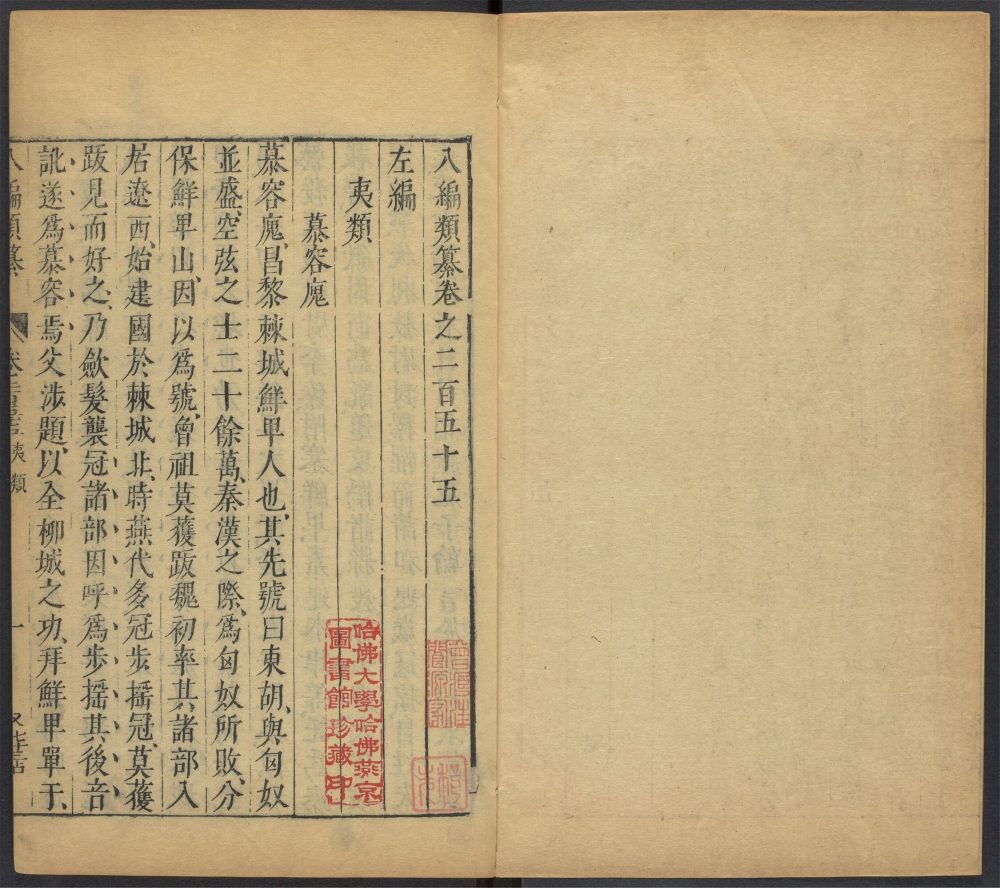 八編類纂卷之二百五十五
左編
夷類
慕容廆
慕容廆、昌黎棘城鮮卑人也、其先號曰東胡、與匈奴
並盛、空弦之士二十餘萬、秦漢之際、為匈奴所敗、分
保鮮卑山、因以為號、曾祖莫䕶跋魏初率其諸部入
居遼西、始建國於棘城北、時燕代多冠步搖冠、莫䕶
跋見而好之、乃歛髮襲冠諸部因呼為步搖其後音
訛遂為慕容焉父涉題、以全柳城之功、拜鮮卑單于、
八編類纂
夷類
一
哈佛大學哈佛燕京
圖書館珍藏印